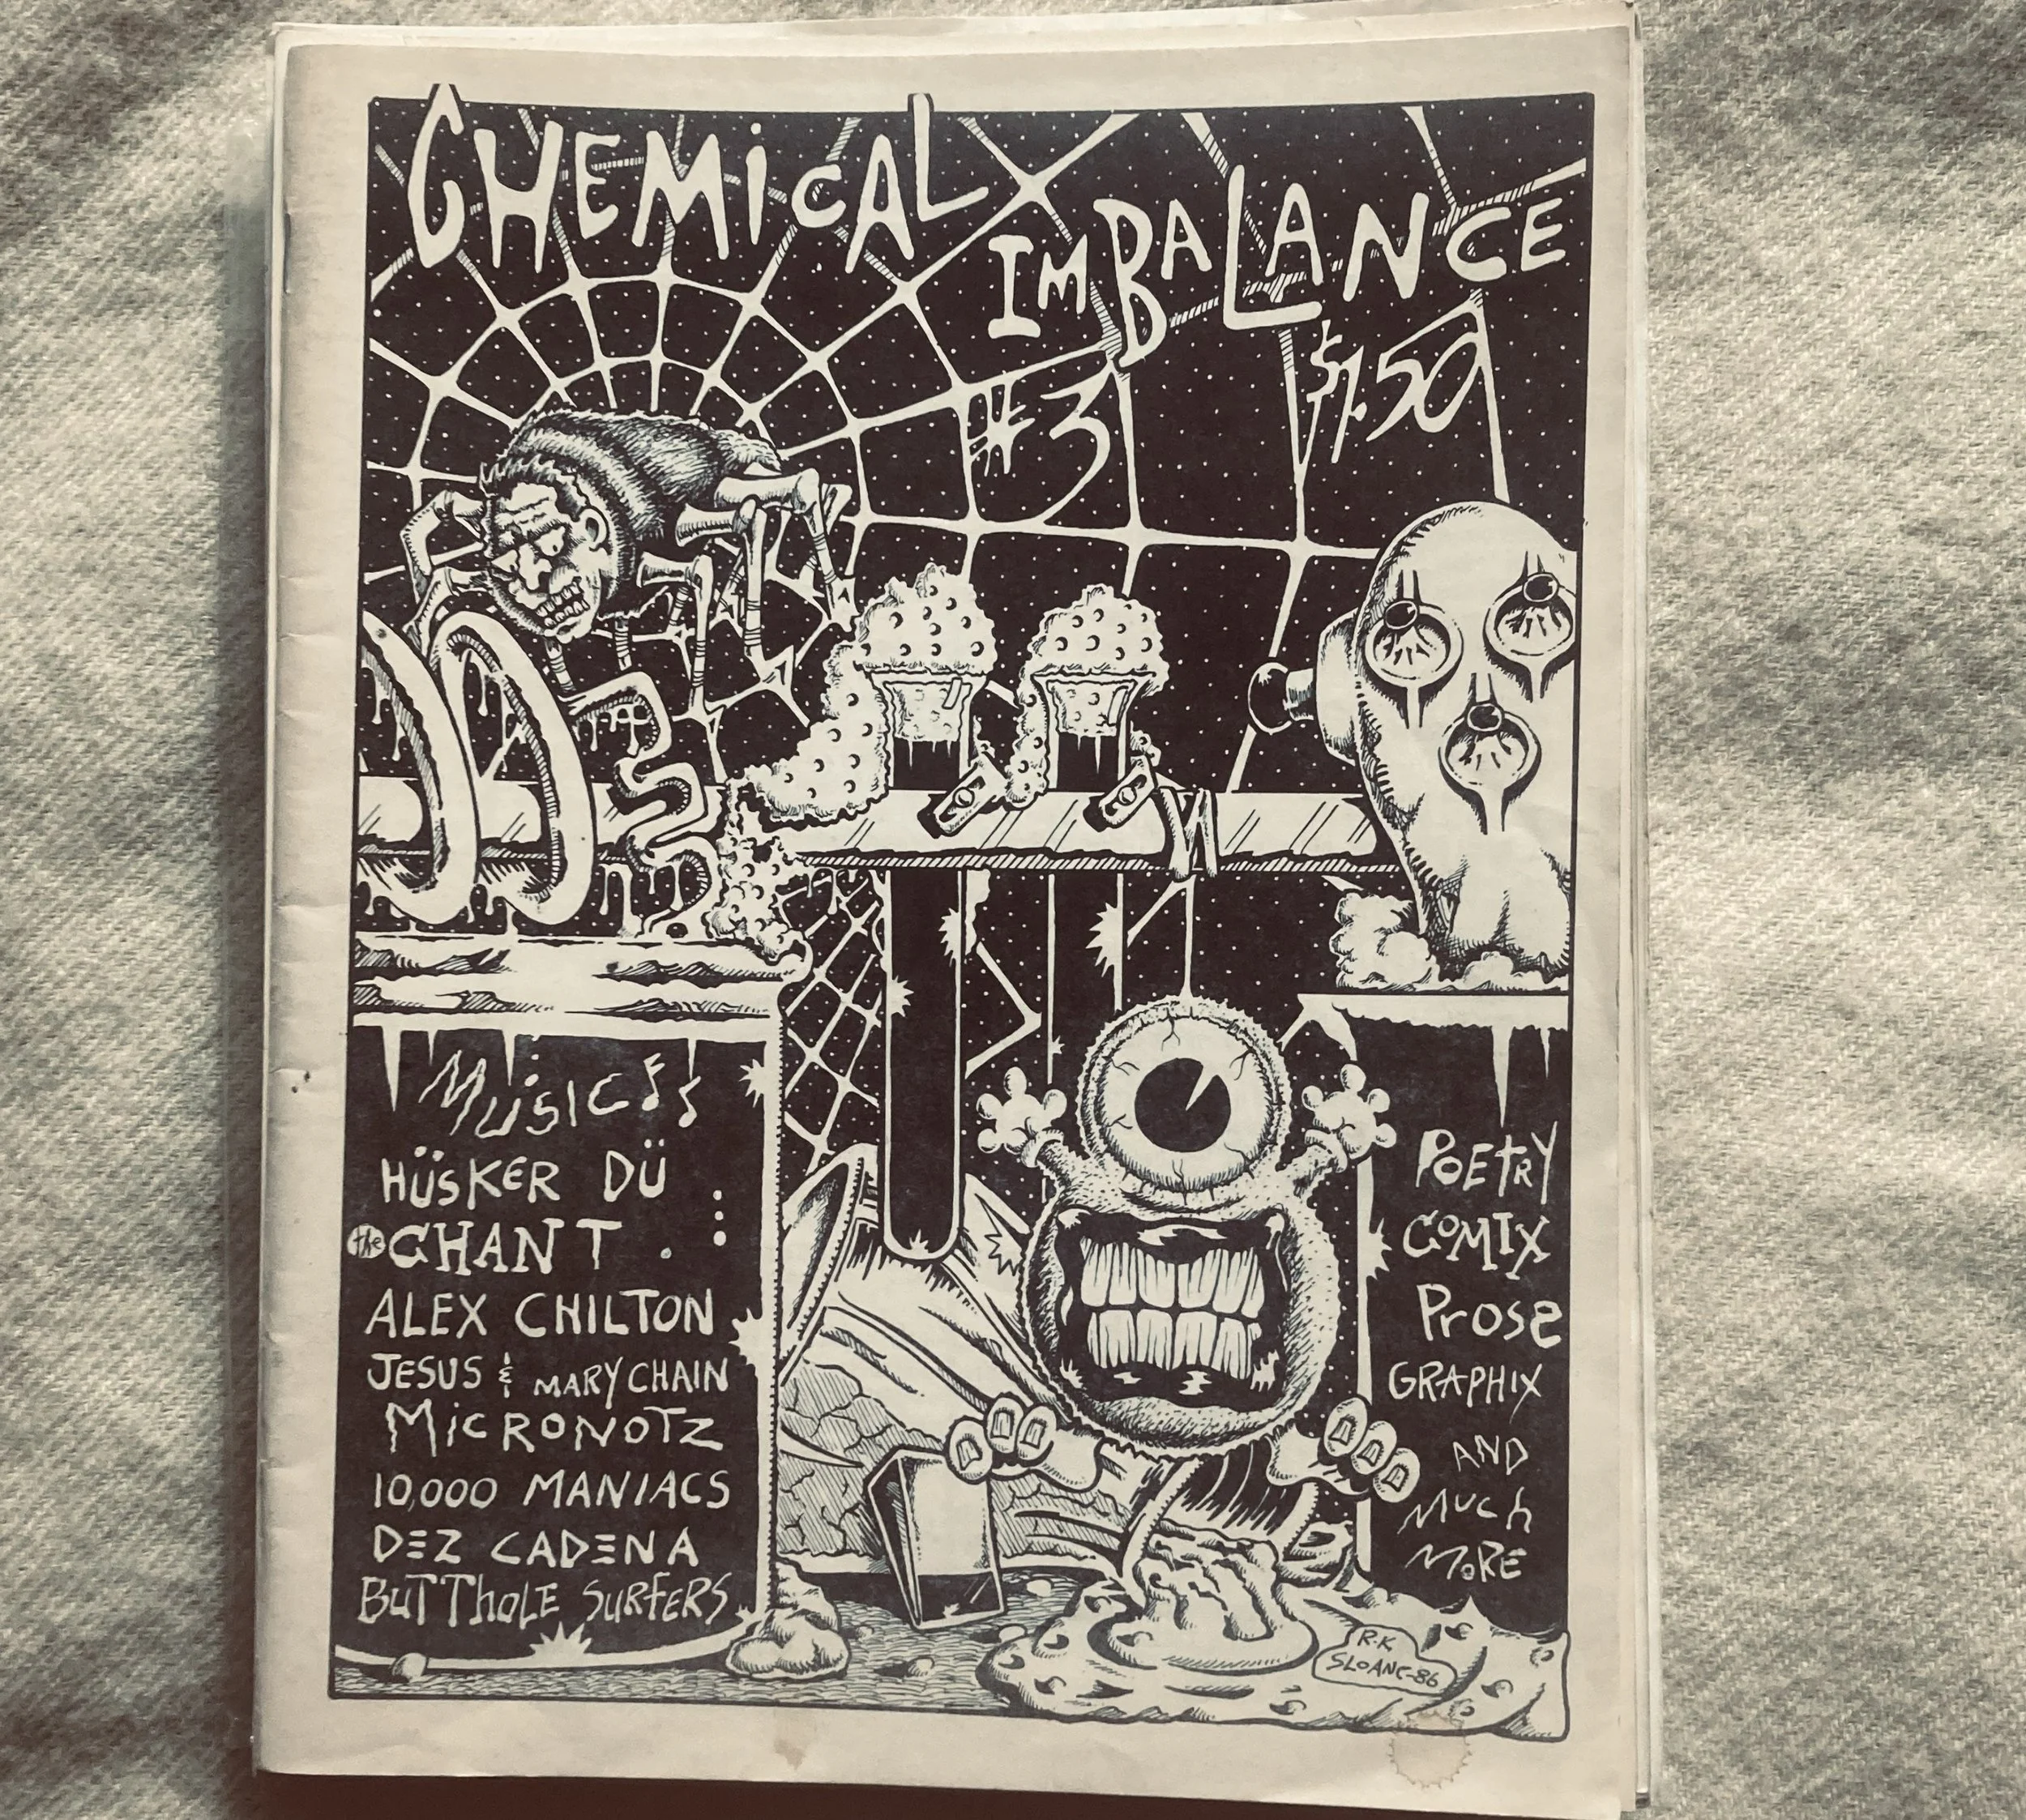 CHEMiCAL
IMBALANCE
#3
$1.50
MUSIC
HÜSKER DÜ
the CHANT
ALEX CHILTON
JESUS & MARY CHAIN
MiCRONOTZ
10,000 MANIACS
DEZ CADENA
BUTTHOLE SURFERS
POETRY
COMIX
PROSE
GRAPHIX
AND
MUCH
MORE
R.K
SLOANE-86